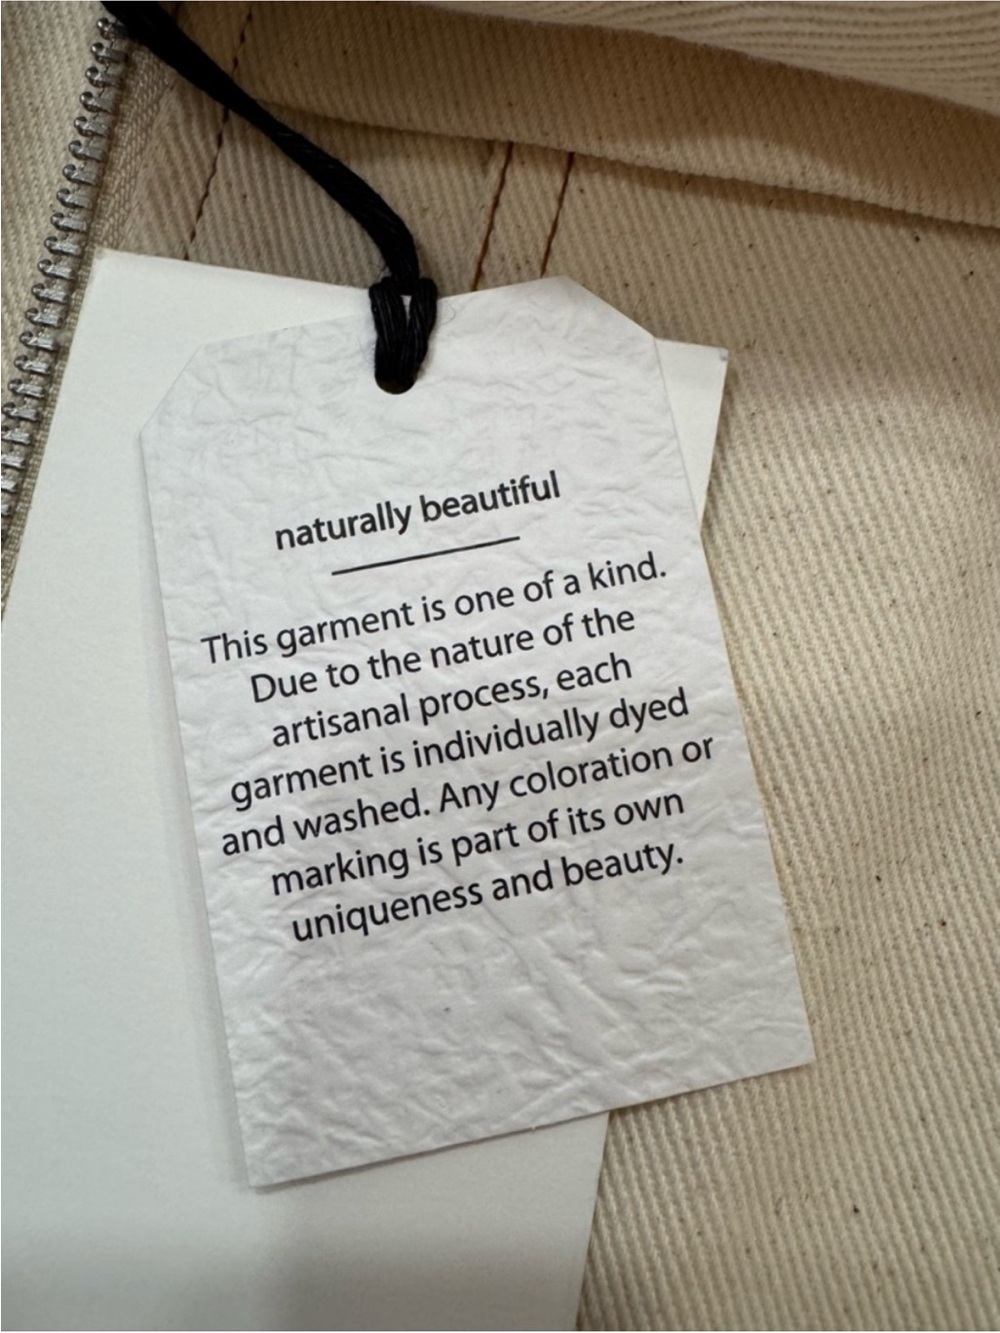 naturally beautiful
This garment is one of a kind.
Due to the nature of the
artisanal process, each
garment is individually dyed
and washed. Any coloration or
marking is part of its own
uniqueness and beauty.